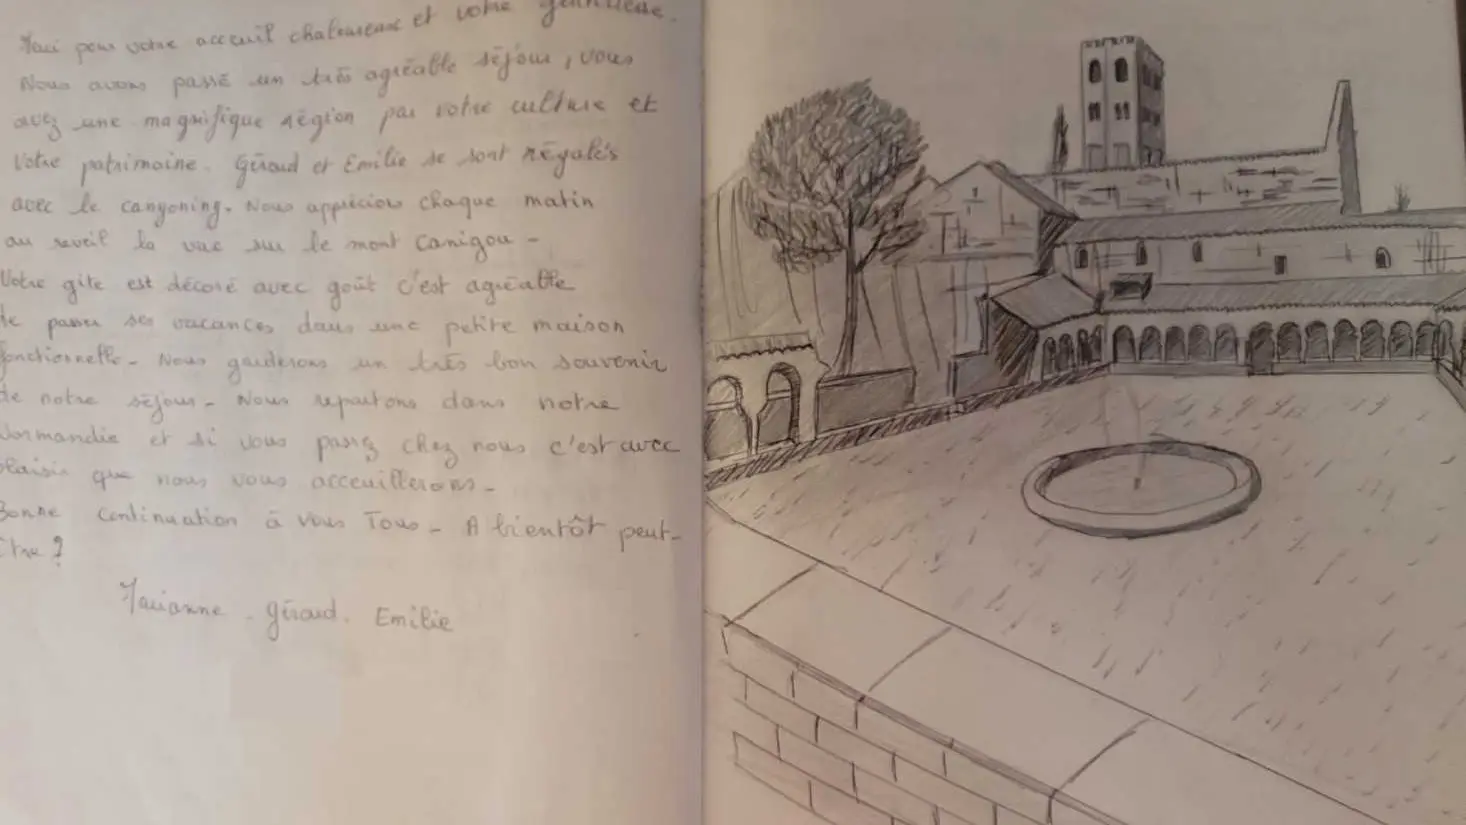 Merci pour votre acceuil chaleureux et votre gentillesse.
Nous avons passé un très agréable séjour, vous
avez une magnifique région par votre culture et
votre patrimoine. Géraud et Emilie se sont régalés
avec le canyoning. Nous apprécions chaque matin
au reveil la vue sur le mont Canigou -
Votre gîte est décoré avec goût c'est agréable
de passer ses vacances dans une petite maison
fonctionnelle - Nous garderons un très bon souvenir
de notre séjour - Nous repartons dans notre
Normandie et si vous passez chez nous c'est avec
plaisir que nous vous acceuillerons -
Bonne continuation à vous Tous - A bientôt peut-
être ?
Marianne - Géraud. Emilie